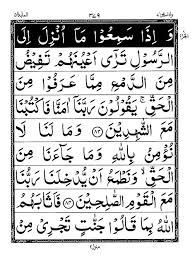 وَ اِذَا سَمِعُوْا مَاۤ اُنْزِلَ اِلَى
الرَّسُوْلِ تَرٰۤى اَعْيُنَهُمْ تَفِيْضُ
مِنَ الدَّمْعِ مِمَّا عَرَفُوْا مِنَ
الْحَقِّ ۚ يَقُوْلُوْنَ رَبَّنَاۤ اٰمَنَّا فَاكْتُبْنَا
مَعَ الشّٰهِدِيْنَ ﴿٨٣﴾ وَ مَا لَنَا لَا
نُؤْمِنُ بِاللّٰهِ وَ مَا جَآءَنَا مِنَ
الْحَقِّ ۙ وَ نَطْمَعُ اَنْ يُّدْخِلَنَا رَبُّنَا
مَعَ الْقَوْمِ الصّٰلِحِيْنَ ﴿٨٤﴾ فَاَثَابَهُمُ
اللّٰهُ بِمَا قَالُوْا جَنّٰتٍ تَجْرِيْ مِنْ